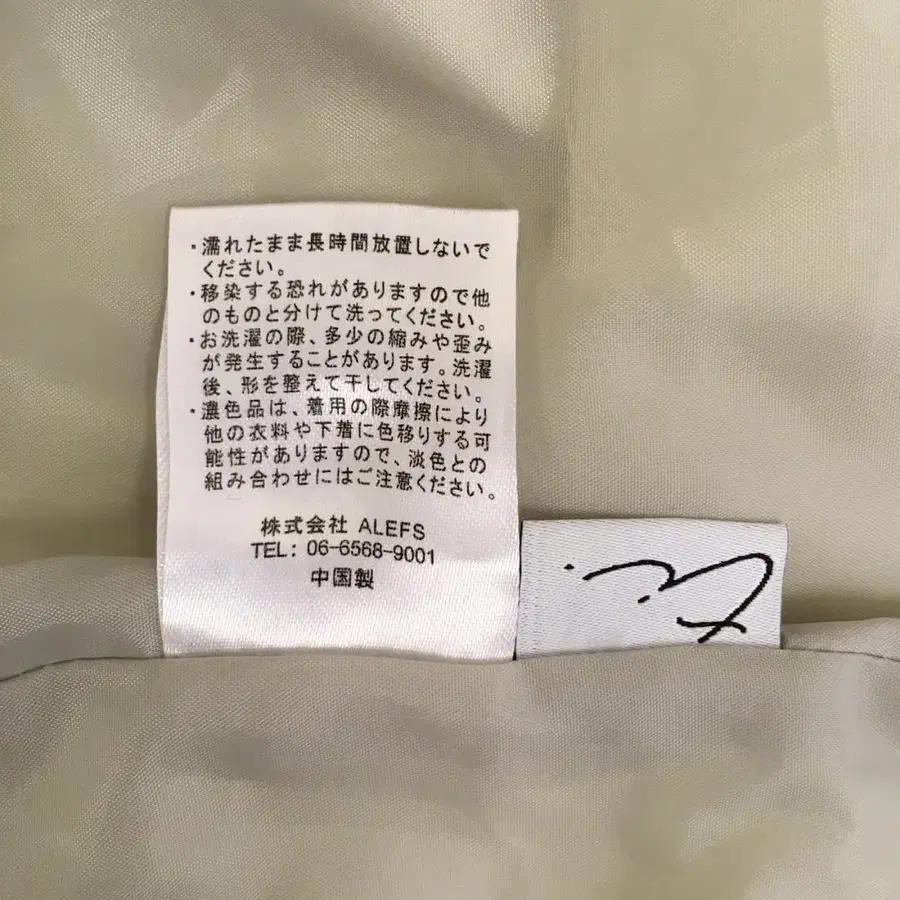 ・濡れたまま長時間放置しないで
ください。
・移染する恐れがありますので他
のものと分けて洗ってください。
・お洗濯の際、多少の縮みや歪み
が発生することがあります。洗濯
後、形を整えて干してください。
・濃色品は、着用の際摩擦により
他の衣料や下着に色移りする可
能性がありますので、淡色との
組み合わせにはご注意ください。
株式会社 ALEFS
TEL: 06-6568-9001
中国製